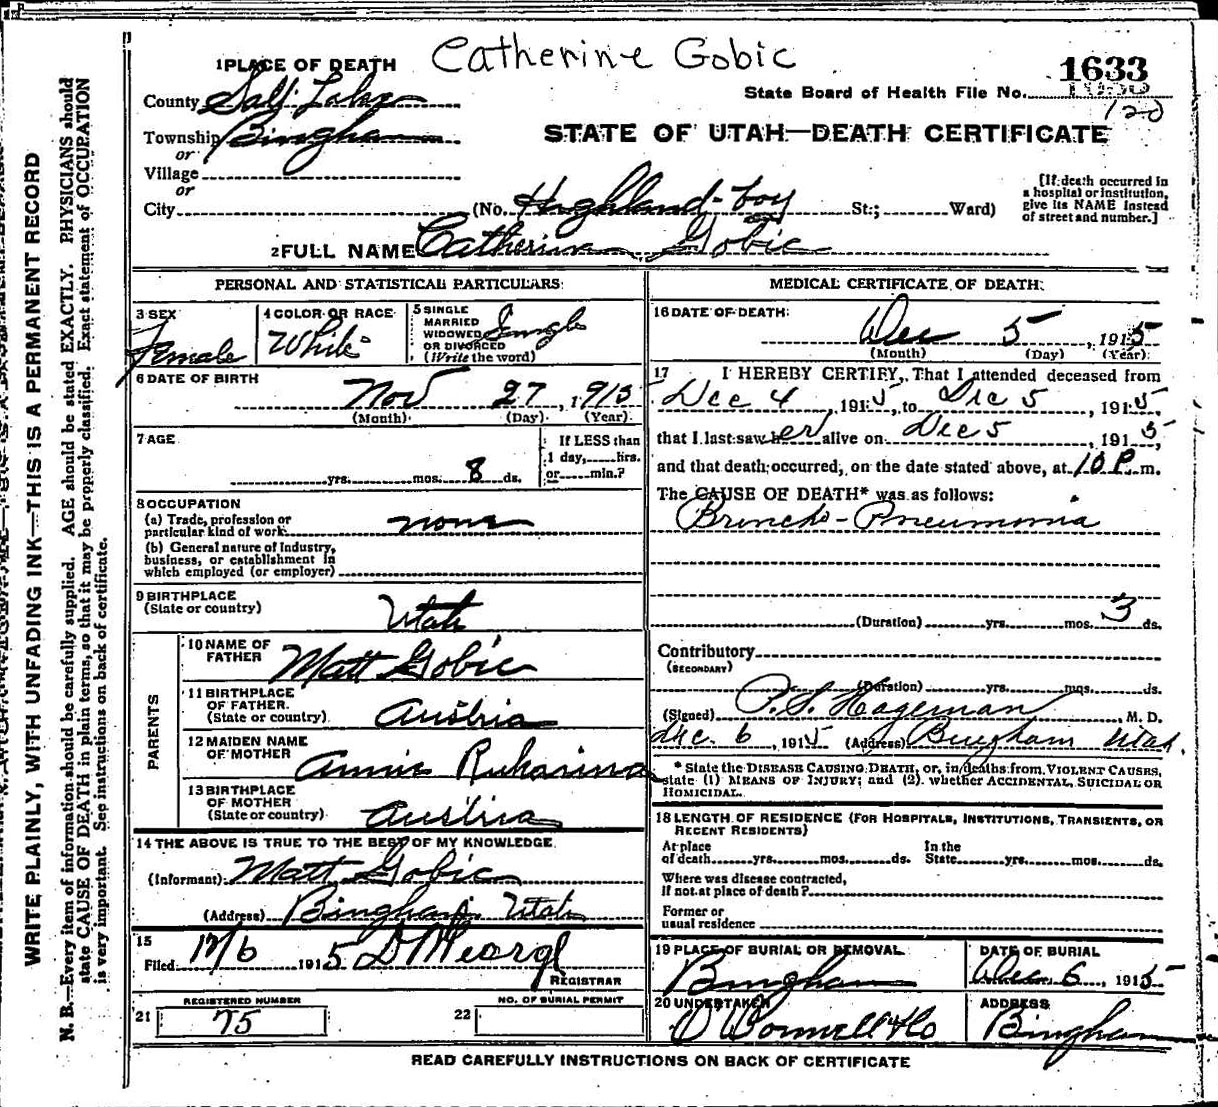 Catherine Gobic
1 PLACE OF DEATH
1633
County Salt Lake
State Board of Health File No.
120
Township Bingham
STATE OF UTAH—DEATH CERTIFICATE
or
Village
or
City (No. Highland-boy St.; Ward)
[If death occurred in
a hospital or institution,
give its NAME instead
of street and number.]
2 FULL NAME Catherina Gobic
PERSONAL AND STATISTICAL PARTICULARS
3 SEX
Female
4 COLOR OR RACE
White
5 SINGLE
MARRIED
WIDOWED
OR DIVORCED
(Write the word)
Single
6 DATE OF BIRTH
Nov 27, 1915
(Month) (Day) (Year)
7 AGE
If LESS than
1 day, hrs.
or min.?
yrs. mos. 8 ds.
8 OCCUPATION
(a) Trade, profession or
particular kind of work none
(b) General nature of Industry,
business, or establishment in
which employed (or employer)
9 BIRTHPLACE
(State or country) Utah
PARENTS
10 NAME OF
FATHER Matt Gobic
11 BIRTHPLACE
OF FATHER
(State or country) Austria
12 MAIDEN NAME
OF MOTHER Annie Rukarina
13 BIRTHPLACE
OF MOTHER
(State or country) Austria
14 THE ABOVE IS TRUE TO THE BEST OF MY KNOWLEDGE
(Informant) Matt Gobic
(Address) Bingham Utah
15
Filed 12/6 1915
REGISTRAR
REGISTERED NUMBER
21 75
NO. OF BURIAL PERMIT
22
MEDICAL CERTIFICATE OF DEATH
16 DATE OF DEATH
Dec 5, 1915
(Month) (Day) (Year)
17 I HEREBY CERTIFY, That I attended deceased from
Dec 4, 1915, to Dec 5, 1915,
that I last saw her alive on Dec 5, 1915,
and that death occurred, on the date stated above, at 10 P. m.
The CAUSE OF DEATH* was as follows:
Broncho-Pneumonia
(Duration) yrs. mos. 3 ds.
Contributory
(SECONDARY)
(Duration) yrs. mos. ds.
(Signed) P. S. Hageman, M. D.
Dec. 6, 1915 (Address) Bingham Utah.
* State the DISEASE CAUSING DEATH, or, in deaths from VIOLENT CAUSES,
state (1) MEANS OF INJURY; and (2) whether ACCIDENTAL, SUICIDAL OR
HOMICIDAL.
18 LENGTH OF RESIDENCE (FOR HOSPITALS, INSTITUTIONS, TRANSIENTS, OR
RECENT RESIDENTS)
At place
of death yrs. mos. ds.
In the
State yrs. mos. ds.
Where was disease contracted,
if not at place of death?
Former or
usual residence
19 PLACE OF BURIAL OR REMOVAL
Bingham
DATE OF BURIAL
Dec 6, 1915
20 UNDERTAKER
O Donnell & Co
ADDRESS
Bingham
READ CAREFULLY INSTRUCTIONS ON BACK OF CERTIFICATE
WRITE PLAINLY, WITH UNFADING INK—THIS IS A PERMANENT RECORD
N. B.—Every item of information should be carefully supplied. AGE should be stated EXACTLY. PHYSICIANS should
state CAUSE OF DEATH in plain terms, so that it may be properly classified. Exact statement of OCCUPATION
is very important. See instructions on back of certificate.